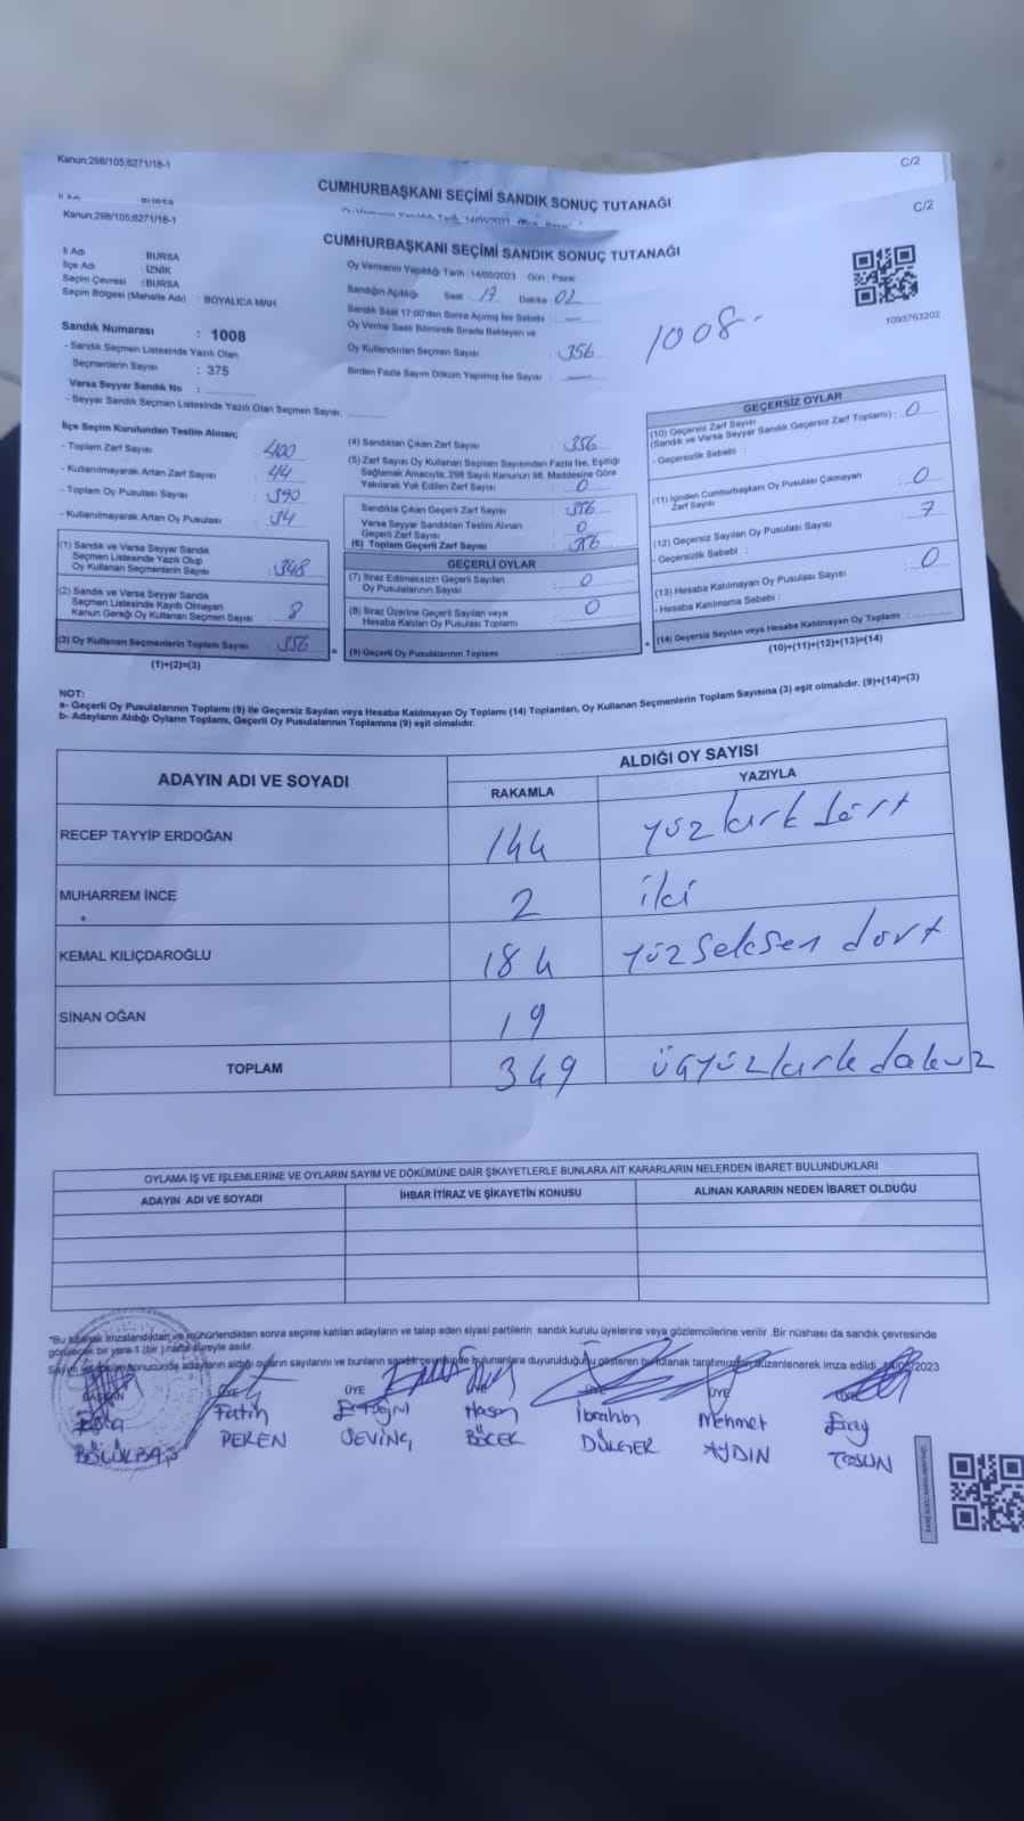 Kanun:298/105;6271/18-1
C/2
CUMHURBAŞKANI SEÇİMİ SANDIK SONUÇ TUTANAĞI
Kanun:298/105;6271/18-1
C/2
CUMHURBAŞKANI SEÇİMİ SANDIK SONUÇ TUTANAĞI
İl Adı BURSA
İlçe Adı İZNİK
Seçim Çevresi :BURSA
Seçim Bölgesi (Mahalle Adı) : BOYALICA MAH
Sandık Numarası : 1008
- Sandık Seçmen Listesinde Yazılı Olan
Seçmenlerin Sayısı : 375
Varsa Seyyar Sandık No :
- Seyyar Sandık Seçmen Listesinde Yazılı Olan Seçmen Sayısı
Oy Vermenin Yapıldığı Tarih :14/05/2023 Gün : Pazar
Sandığın Açıldığı Saat 17 Dakika 02
Sandık Saat 17:00'den Sonra Açılmış İse Sebebi
Oy Verme Saati Bitiminde Sırada Bekleyen ve
Oy Kullandırılan Seçmen Sayısı : 356
Birden Fazla Sayım Döküm Yapılmış İse Sayısı :
1008-
1093763202
İlçe Seçim Kurulundan Teslim Alınan;
- Toplam Zarf Sayısı 400
- Kullanılmayarak Artan Zarf Sayısı 44
- Toplam Oy Pusulası Sayısı 390
- Kullanılmayarak Artan Oy Pusulası 34
(1) Sandık ve Varsa Seyyar Sandık
Seçmen Listesinde Yazılı Olup
Oy Kullanan Seçmenlerin Sayısı 348
(2) Sandık ve Varsa Seyyar Sandık
Seçmen Listesinde Kayıtlı Olmayan
Kanun Gereği Oy Kullanan Seçmen Sayısı 8
(3) Oy Kullanan Seçmenlerin Toplam Sayısı 356
(1)+(2)=(3)
(4) Sandıktan Çıkan Zarf Sayısı 356
(5) Zarf Sayısı Oy Kullanan Seçmen Sayısından Fazla İse, Eşitliği
Sağlamak Amacıyla, 298 Sayılı Kanunun 98. Maddesine Göre
Yakılarak Yok Edilen Zarf Sayısı 0
Sandıkta Çıkan Geçerli Zarf Sayısı 356
Varsa Seyyar Sandıktan Teslim Alınan
Geçerli Zarf Sayısı 0
(6) Toplam Geçerli Zarf Sayısı 356
GEÇERLİ OYLAR
(7) İtiraz Edilmeksizin Geçerli Sayılan
Oy Pusulalarının Sayısı 0
(8) İtiraz Üzerine Geçerli Sayılan veya
Hesaba Katılan Oy Pusulası Toplamı 0
(9) Geçerli Oy Pusulalarının Toplamı
GEÇERSİZ OYLAR
(10) Geçersiz Zarf Sayısı
(Sandık ve Varsa Seyyar Sandık Geçersiz Zarf Toplamı) : 0
- Geçersizlik Sebebi :
(11) İçinden Cumhurbaşkanı Oy Pusulası Çıkmayan
Zarf Sayısı 0
(12) Geçersiz Sayılan Oy Pusulası Sayısı 7
- Geçersizlik Sebebi :
(13) Hesaba Katılmayan Oy Pusulası Sayısı 0
- Hesaba Katılmama Sebebi :
(14) Geçersiz Sayılan veya Hesaba Katılmayan Oy Toplamı
(10)+(11)+(12)+(13)=(14)
NOT:
a- Geçerli Oy Pusulalarının Toplamı (9) ile Geçersiz Sayılan veya Hesaba Katılmayan Oy Toplamı (14) Toplamları, Oy Kullanan Seçmenlerin Toplam Sayısına (3) eşit olmalıdır. (9)+(14)=(3)
b- Adayların Aldığı Oyların Toplamı, Geçerli Oy Pusulalarının Toplamına (9) eşit olmalıdır.
ADAYIN ADI VE SOYADI
ALDIĞI OY SAYISI
RAKAMLA YAZIYLA
RECEP TAYYİP ERDOĞAN 144 yüzkırk dört
MUHARREM İNCE 2 iki
KEMAL KILIÇDAROĞLU 184 yüzseksen dört
SİNAN OĞAN 19
TOPLAM 349 üçyüzkırk dokuz
OYLAMA İŞ VE İŞLEMLERİNE VE OYLARIN SAYIM VE DÖKÜMÜNE DAİR ŞİKAYETLERLE BUNLARA AİT KARARLARIN NELERDEN İBARET BULUNDUKLARI
ADAYIN ADI VE SOYADI İHBAR İTİRAZ VE ŞİKAYETİN KONUSU ALINAN KARARIN NEDEN İBARET OLDUĞU
"Bu tutanak imzalandıktan ve mühürlendikten sonra seçime katılan adayların ve talep eden siyasi partilerin sandık kurulu üyelerine veya gözlemcilerine verilir. Bir nüshası da sandık çevresinde
görülecek bir yere 1 (bir) hafta süreyle asılır.
adayların aldığı oyların sayılarını ve bunların bulunanlara duyurulduğunu gösteren bu tutanak tarafımızdan düzenlenerek imza edildi. 2023
ÜYE ÜYE
Fatih Hasan İbrahim Mehmet Eray
BÖLÜKBAŞ PEKEN SEVİNÇ BÖCEK DÜLGER AYDIN TOSUN